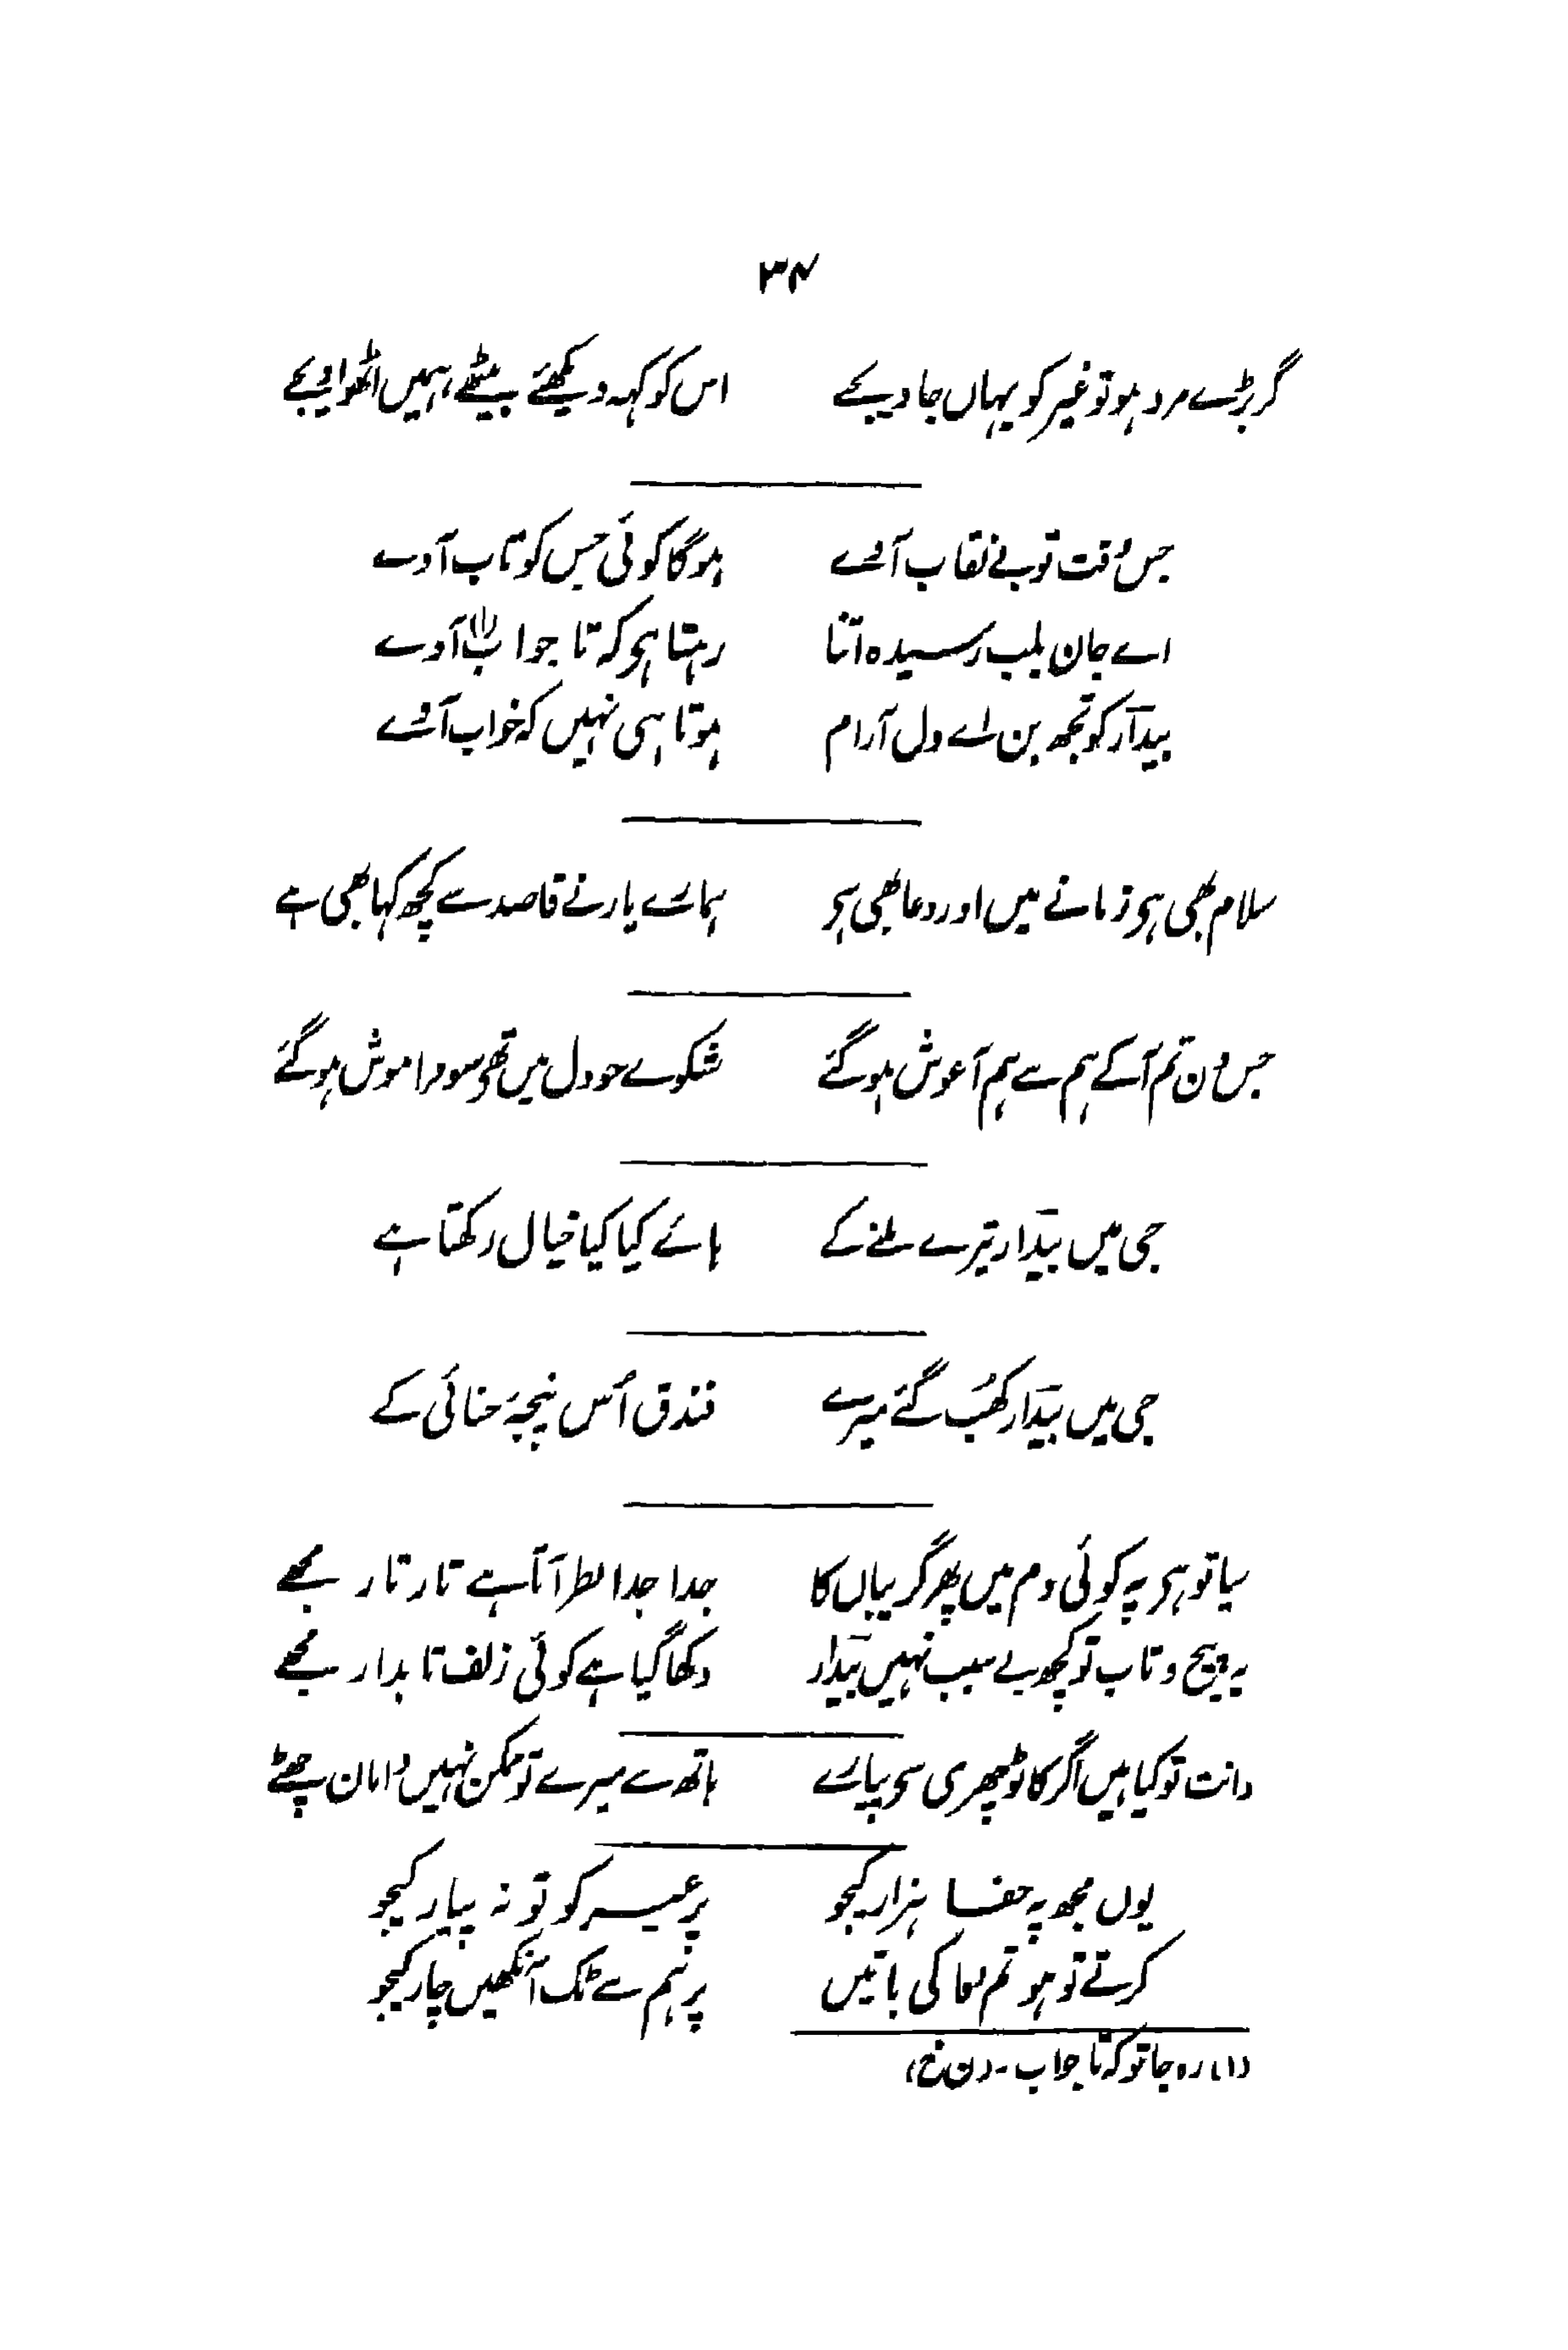 ۳۴
گر بڑے مرد ہو تو غیر کو یہاں جا دیجے اس کو کہہ دیکھئے بیٹھے، ہمیں اٹھوا دیجے
جس وقت تو بے نقاب آوے ہوگا کوئی جس کو تاب آوے
اے جان بلب رسیدہ اتنا رہتا ہی کہ تا جواب(۱) آوے
بیدآر کو تجھ بن اے دل آرام ہوتا ہی نہیں کہ خواب آوے
سلام بھی ہی زمانے میں اور دعا بھی ہی ہمارے یار نے قاصد سے کچھ کہا بھی ہے
جس دن تم آکے ہم سے ہم آغوش ہوگئے شکوے جو دل میں تھے سو فراموش ہوگئے
جی میں بیدآر تیرے ملنے کے ہائے کیا کیا خیال رکھتا ہے
جی میں بیدآر کھُب گئے میرے فندق اُس پنجۂ حنائی کے
سیا تو ہی پہ کوئی دم میں پھر گریباں کا جدا جدا نظر آتا ہے تار تار مجھے
یہ پیچ و تاب تو کچھ بے سبب نہیں بیدآر دکھا گیا ہے کوئی زلف تابدار مجھے
دانت تو کیا ہیں اگر کاٹو چھری سی پیارے ہاتھ سے میرے تو ممکن نہیں دامان چھٹے
یوں مجھ پہ جفا ہزار کیجو پر غیر کو تو نہ پیار کیجو
کرتے تو ہو تم وفا کی باتیں پر ہم سے ٹک آنکھیں چار کیجو
(۱) رہ جا تو کہ تا جواب۔ (ن خ)